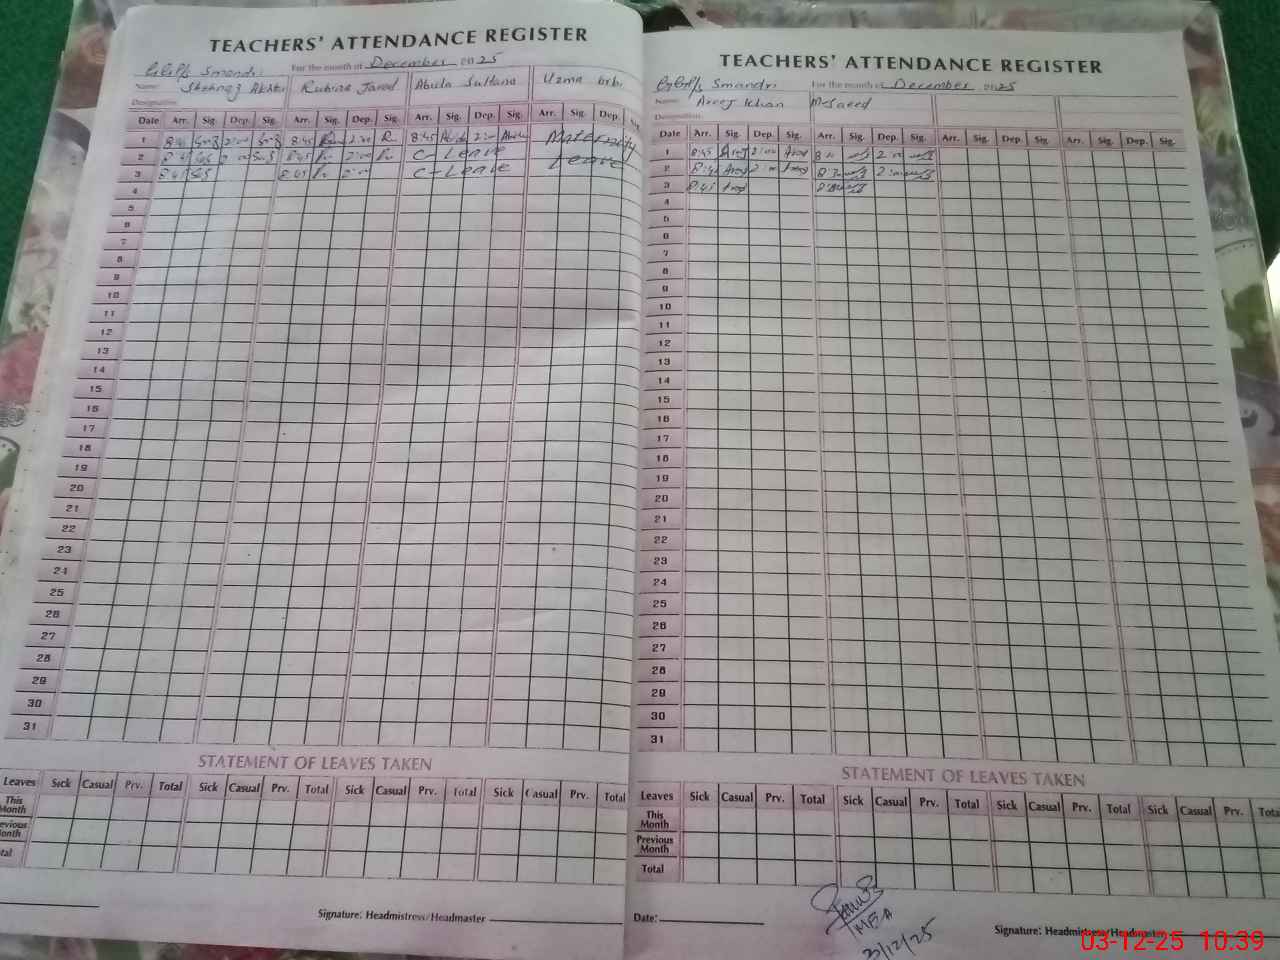 TEACHERS' ATTENDANCE REGISTER
Smandri For the month of December 2025
Name: Shehnaz Akhtar Rubina Javed Abida Sultana Uzma bibi
Designation
Date Arr. Sig. Dep. Sig. Arr. Sig. Dep. Sig. Arr. Sig. Dep. Sig. Arr. Sig. Dep. Sig.
1 8:45 2:00 8:45 2:00 8:45 2:00 Maternity
2 8:45 2:00 8:45 2:00 C-Leave Leave
3 8:45 8:45 2:00 C-Leave
4
5
6
7
8
9
10
11
12
13
14
15
16
17
18
19
20
21
22
23
24
25
26
27
28
29
30
31
STATEMENT OF LEAVES TAKEN
Leaves Sick Casual Prv. Total Sick Casual Prv. Total Sick Casual Prv. Total Sick Casual Prv. Total
This Month
evious onth
tal
Signature: Headmistress/Headmaster
TEACHERS' ATTENDANCE REGISTER
Smandri For the month of December 2025
Name: Areej Khan M.Saeed
Designation
Date Arr. Sig. Dep. Sig. Arr. Sig. Dep. Sig. Arr. Sig. Dep Sig. Arr. Sig. Dep. Sig.
1 8:45 Areej 2:00 Areej 2:00
2 8:45 Areej 2:00 Areej 8:30 2:00
3 8:45 Areej
4
5
6
7
8
9
10
11
12
13
14
15
16
17
18
19
20
21
22
23
24
25
26
27
28
29
30
31
STATEMENT OF LEAVES TAKEN
Leaves Sick Casual Prv. Total Sick Casual Prv. Total Sick Casual Prv. Total Sick Casual Prv. Tota
This Month
Previous Month
Total
Date:
MEA
3/12/25
Signature: Headmistress/Headmaster
03-12-25 10.39